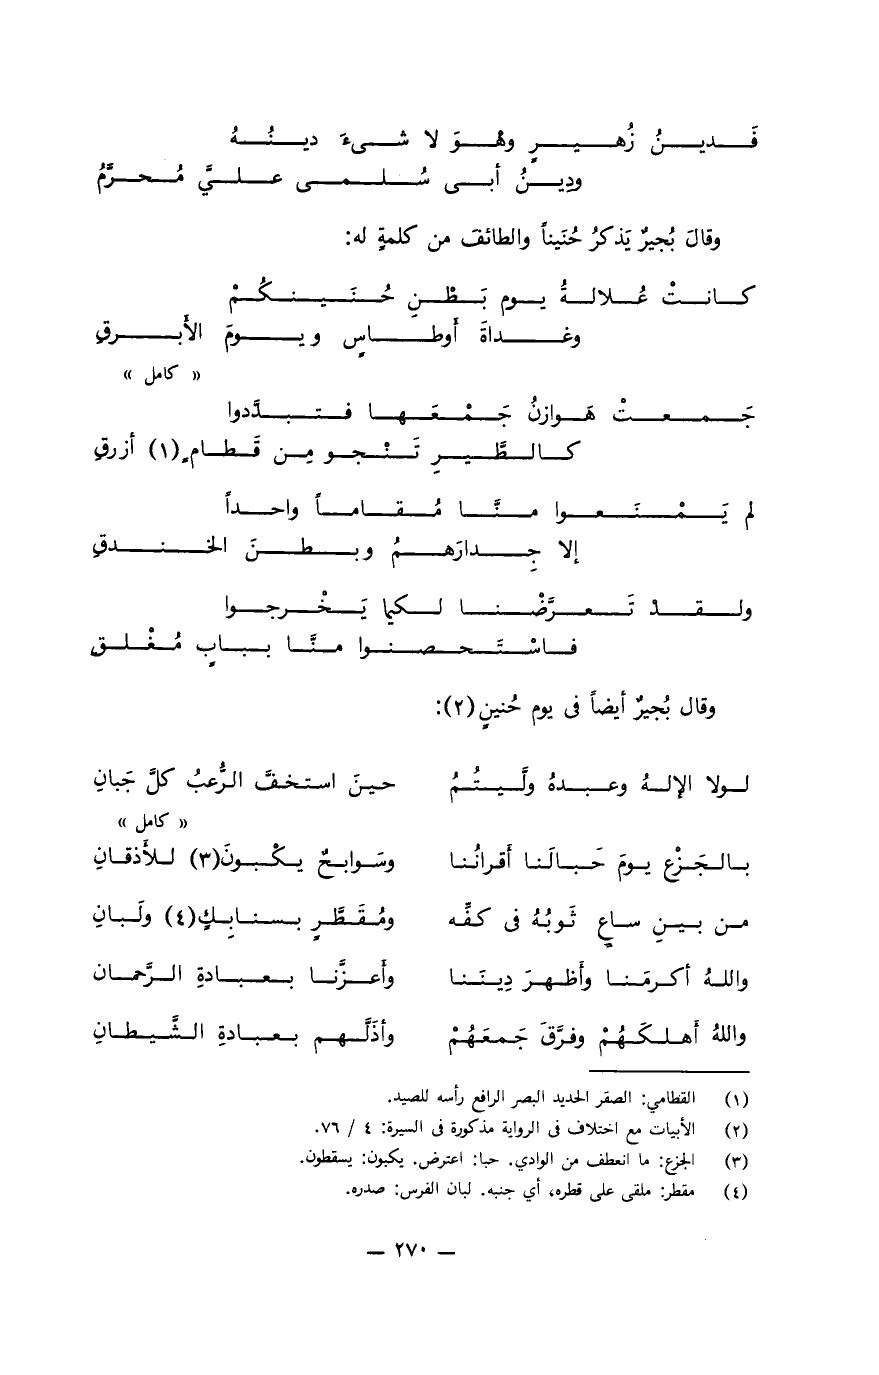 فَدينُ زُهيرٍ وهْوَ لا شىءَ دينُهُ
ودِينُ أبى سُلمى علىَّ مُحرَّمُ
وقالَ بُجيرٌ يَذكرُ حُنَيناً والطائفَ من كلمةٍ له:
كانتْ عُلالةُ يوم بَطْنِ حُنَينكُمْ
وغداةَ أَوطاسٍ ويومَ الأَبرقِ
« كامل »
جَمعتْ هَوازنُ جَمْعَها فتبدَّدوا
كالطَّيرِ تَنْجو مِن قَطامٍ(١) أزرقِ
لم يَمْنَعوا منَّا مُقاماً واحداً
إلا جِدارَهمُ وبطنَ الخندقِ
ولقدْ تَعرَّضْنا لكيما يَخْرجوا
فاسْتَحصنوا منَّا ببابٍ مُغْلقِ
وقال بُجيرٌ أيضاً فى يوم حُنينٍ(٢):
لولا الإلهُ وعبدهُ ولَّيتُمُ حينَ استخفَّ الرُّعبُ كلَّ جَبانِ
« كامل »
بالجَزْعِ يومَ حَبالَنا أقرانُنا وسَوابحٌ يكْبونَ(٣) للأذقانِ
من بينِ ساعٍ ثَوبُهُ فى كفِّه ومُقَطَّرٍ بسنابِكٍ(٤) ولَبانِ
واللهُ أكرمَنا وأظهرَ دِينَنا وأَعزَّنا بعبادةِ الرَّحمانِ
واللهُ أَهلكَهُمْ وفرَّقَ جَمعَهُمْ وأذَلَّهم بعبادةِ الشَّيطانِ
(١) القطامي: الصقر الحديد البصر الرافع رأسه للصيد.
(٢) الأبيات مع اختلاف فى الرواية مذكورة فى السيرة: ٤ / ٧٦.
(٣) الجزع: ما انعطف من الوادي. حبا: اعترض. يكبون: يسقطون.
(٤) مقطر: ملقى على قطره، أي جنبه. لبان الفرس: صدره.
— ٢٧٠ —